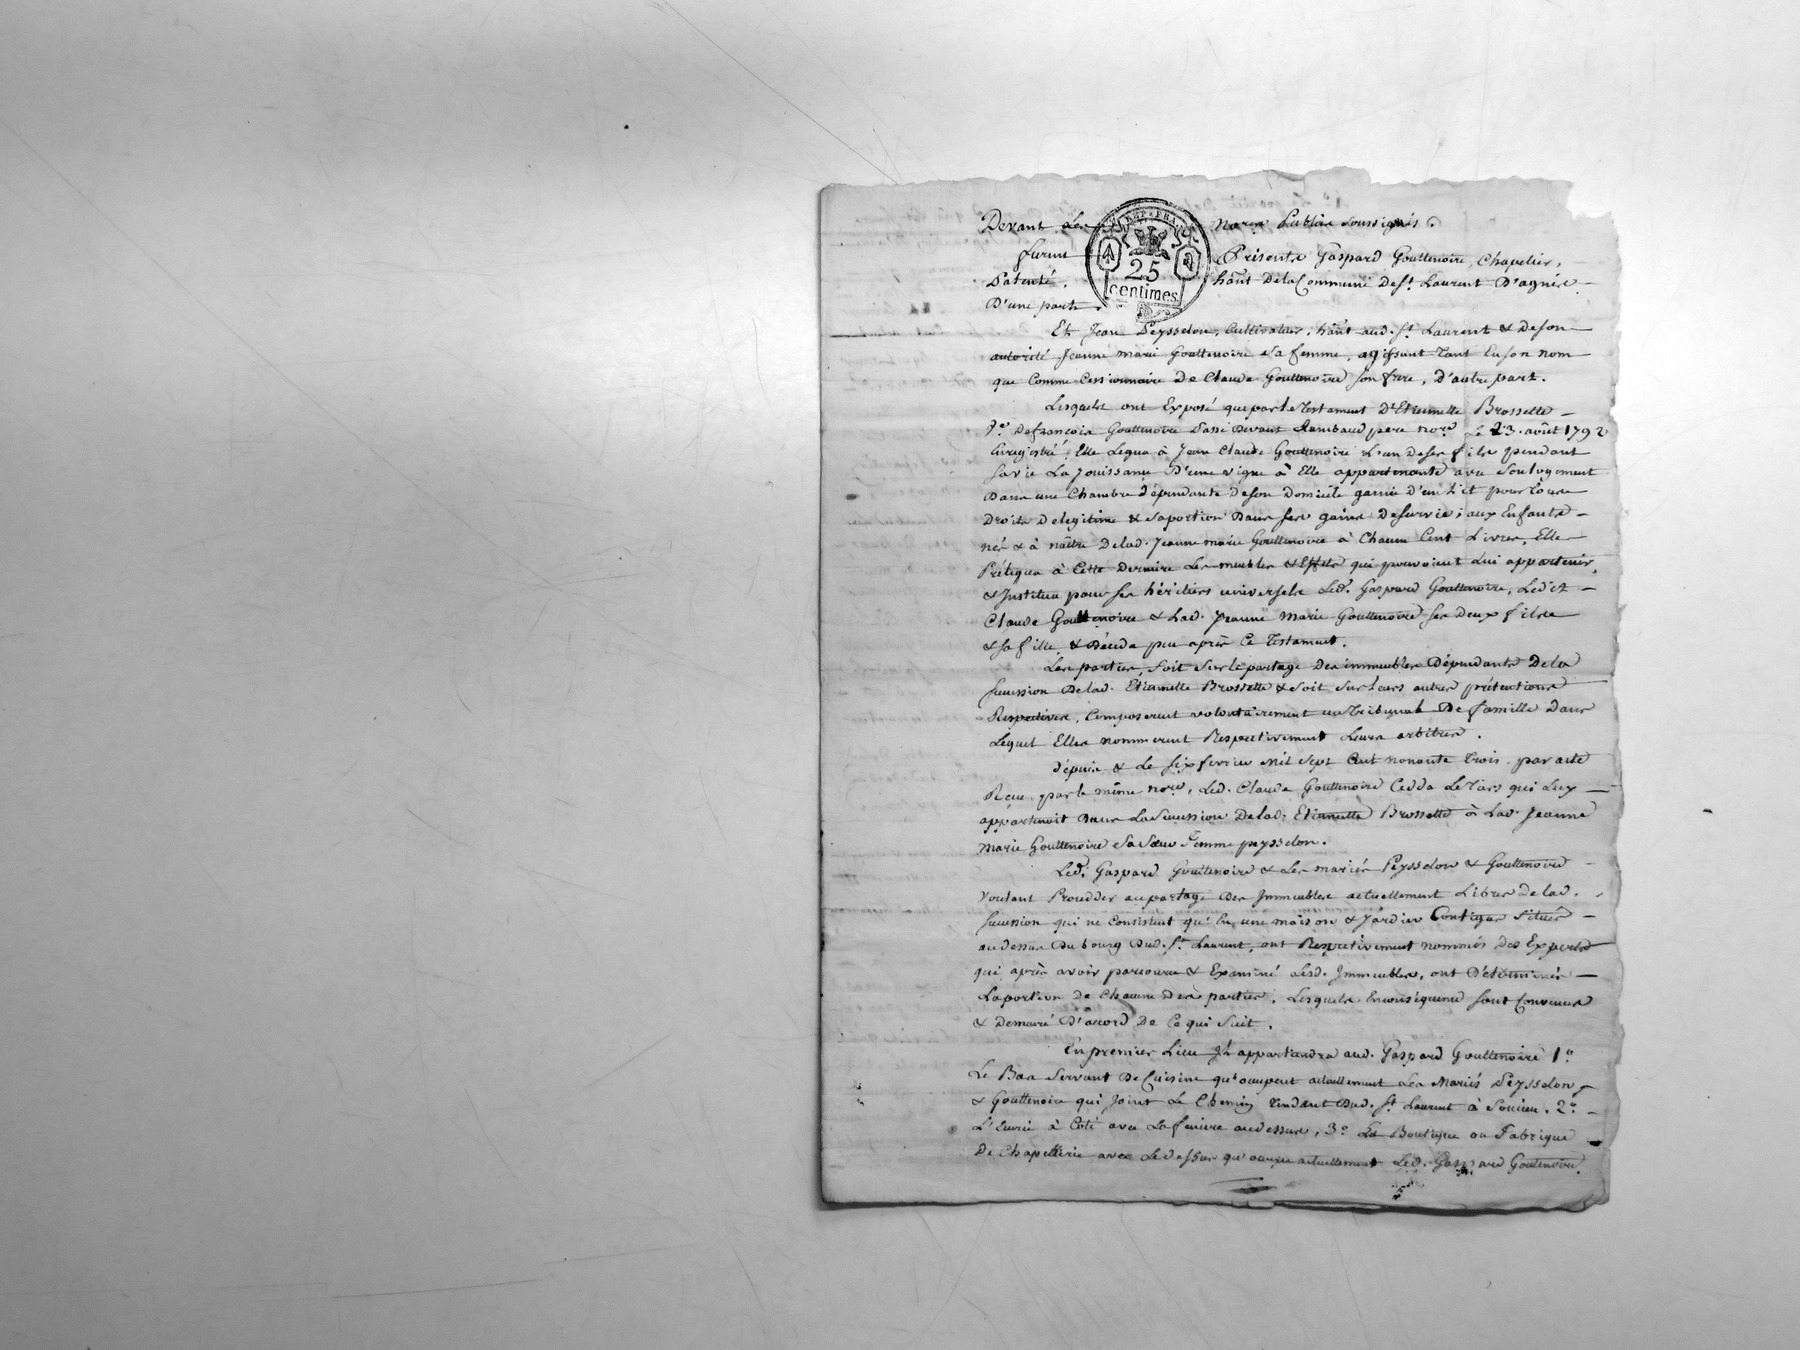 Devant Les Nores Publics soussignés.
REP. FRA.
25
centimes
furent Présents Gaspard Gouttenoire, Chapelier,
Patenté, hant de la Commune de St Laurent D'agnie
D'une part.
Et Jean Peysselon, Cultivateur, hant aud. St Laurent & de son
autorité Jeanne marie Gouttenoire sa femme, agissant tant En son nom
que Comme Cessionnaire de Claude Gouttenoire son frere, D'autre part.
Lesquels ont Exposé que par le testament D'Etiennette Brossette
Ve de françois Gouttenoire Passé Devant Rambaud pere nore Le 23. août 1792
Enregistré, Elle Legua à Jean Claude Gouttenoire L'un de ses fils pendant
sa vie La jouissance D'une vigne à Elle appartenante avec son logement
Dans une Chambre dépendante de son Domicile garnie d'un Lit pour tous
Droits De legitime & sa portion Dans ses gains de survie; aux Enfants
nés & à naître De lad. Jeanne marie Gouttenoire à Chacun Cent Livres, Elle
Prélegua à Cette Derniere Les meubles & Effets qui pouvoient Lui appartenir,
& Institua pour ses héritiers universels Led. Gaspard Gouttenoire, Ledit
Claude Gouttenoire & Lad. Jeanne Marie Gouttenoire ses Deux fils
& sa fille, & Décéda peu après Ce testament.
Les parties, soit sur le partage Des immeubles Dépendants De la
succession De lad. Etiennette Brossette & soit sur Leurs autres prétentions
Respectives, Composerent volontairement un Tribunal De famille Dans
Lequel Elles nommerent Respectivement Leurs arbitres.
Depuis & Le six fevrier Mil sept Cent nonante trois. par acte
Recu par le même nore, Led. Claude Gouttenoire Cedda Le Tiers qui Luy
appartenoit Dans La Succession De lad. Etiennette Brossette à Lad. Jeanne
Marie Gouttenoire sa Sœur Femme peysselon.
Led. Gaspard Gouttenoire & Les mariés Peysselon & Gouttenoire
voulant Procedder au partage Des Immeubles actuellement Libres de lad.
succession qui ne Consistent qu'En une maison & Jardin Contigus situés
au dessus Du bourg Dud. St Laurent, ont Respectivement nommés des Experts
qui après avoir parcouru & Examiné Lesd. Immeubles, ont Déterminés
La portion de Chacune Des parties, Lesquels En conséquence sont Convenus
& Demeuré D'accord De Ce qui suit.
En premier Lieu Il appartiendra aud. Gaspard Gouttenoire 1o
Le Bas servant De Cuisine qu'occupent actuellement Les Mariés Peysselon
& Gouttenoire qui joint Le Chemin tendant Dud. St Laurent à Soucieu. 2o
L'Ecurie à Coté avec La feniere au dessus, 3o La Boutique ou Fabrique
De Chapellerie avec Le dessus qu'occupe actuellement Led. Gaspard Goutenoire.